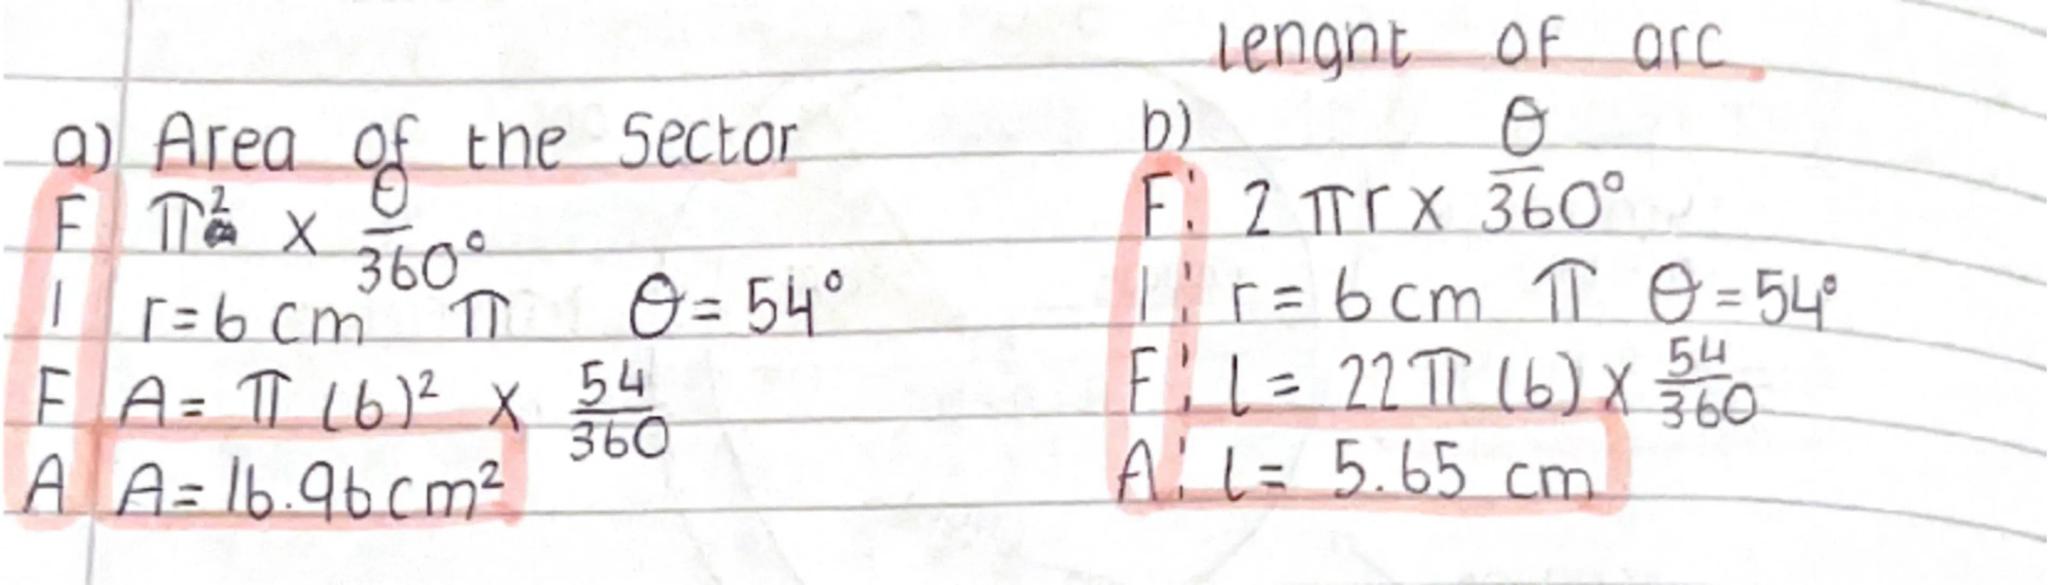 a) Area of the Sector
F π² × θ/360°
I r=6 cm π θ=54°
F A= π (6)² × 54/360
A A=16.96cm²
lengnt of arc
b)
F: 2πr × θ/360°
I: r=6cm π θ=54°
F: l= 22π (6) × 54/360
A: l= 5.65 cm